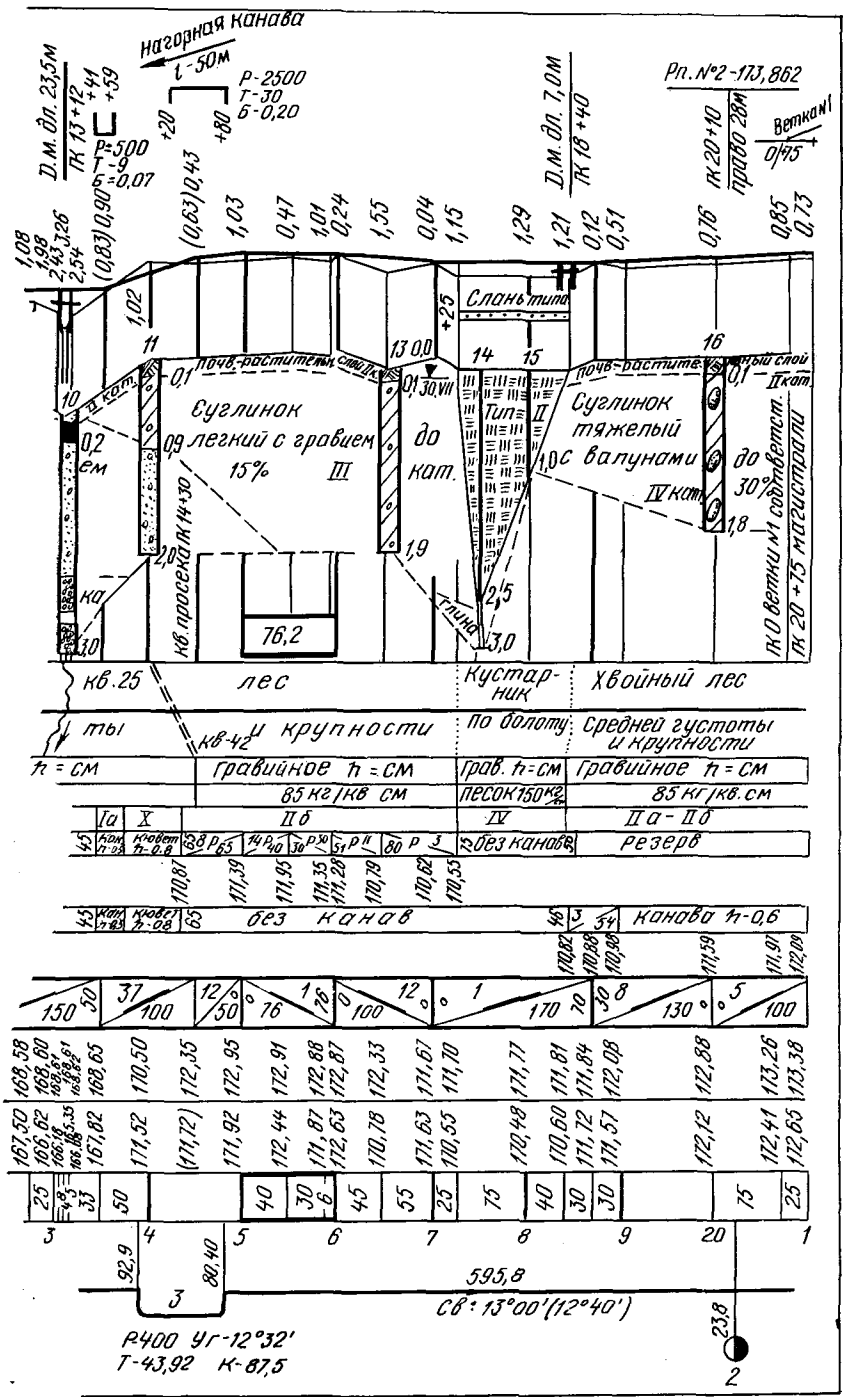 нагорная канава
l-50м
Д.м. дл. 23,5м
ПК 13+12
+41
+59
Р=500
Т-9
Б=0,07
+20
+80
Р-2500
Т-30
Б-0,20
Д.м. дл. 7,0м
ПК 18+40
Рп. №2-173,862
ПК 20+10
право 28м
Ветка №1
0/75
1,08
1,98
2,43
3,26
2,54
(0,83) 0,90
(0,63) 0,43
1,03
0,47
1,01
0,24
1,55
0,04
1,15
1,29
1,21
0,12
0,51
0,76
0,85
0,73
1,02
+25
Слань типа
10
11
13
0,0
14
15
16
II кат.
почв-растительн
слой II к
почв-растите
ный слой
II кат.
0,1
0,1
30,VII
0,1
0,2
ем
0,9
Суглинок
легкий с гравием
15% III
до
кат.
Тип II
1,0
Суглинок
тяжелый
с валунами
IV кат.
до
30%
1,8
2,0
1,9
2,5
3,0
3,0
ка
глина
76,2
кв. просека ПК 14+30
ПК 0 ветки №1 соответст.
ПК 20+75 магистрали
кв.25 лес
Кустар-
ник
Хвойный лес
ты
кв-42
и крупности
По болоту
Средней густоты
и крупности
h = см
гравийное h = см
грав. h=см
гравийное h = см
85 кг/кв см
песок 150 кг/
85 кг/кв.см
Iа X IIб IV IIа-IIб
45 кювет h-0.8 65 8 Р 65 14 Р 40 30 Р 50 51 Р 11 80 Р 3 75 без канав Резерв
170,87
171,39
171,95
171,35
171,28
170,79
170,62
170,55
45 кювет h-0,8 65 без канав 46 3 54 канава h-0,6
170,82
170,88
170,98
171,59
171,97
172,09
150 50 37 100 12 50 76 1 76 0 100 12 1 170 70 30 8 130 5 100
168,58
168,60
168,61
168,61
168,62
168,65
170,50
172,35
172,95
172,91
172,88
172,87
172,33
171,67
171,70
171,77
171,81
171,84
172,08
172,88
173,26
173,38
167,50
166,62
166,18
165,35
167,82
171,52
(171,72)
171,92
172,44
171,87
172,63
170,78
171,63
170,55
170,48
170,60
171,72
171,57
172,12
172,41
172,65
25 48 33 50 40 30 6 45 55 25 75 40 30 30 75 25
3 4 5 6 7 8 9 20 1
92,9
80,40
3
595,8
СВ: 13°00' (12°40')
Р-400 Уг-12°32'
Т-43,92 К-87,5
23,8
2